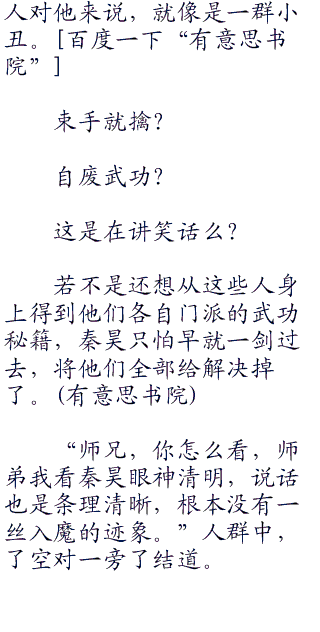 人对他来说，就像是一群小
丑。[百度一下“有意思书
院”]
束手就擒？
自废武功？
这是在讲笑话么？
若不是还想从这些人身
上得到他们各自门派的武功
秘籍，秦昊只怕早就一剑过
去，将他们全部给解决掉
了。(有意思书院)
“师兄，你怎么看，师
弟我看秦昊眼神清明，说话
也是条理清晰，根本没有一
丝入魔的迹象。”人群中，
了空对一旁了结道。